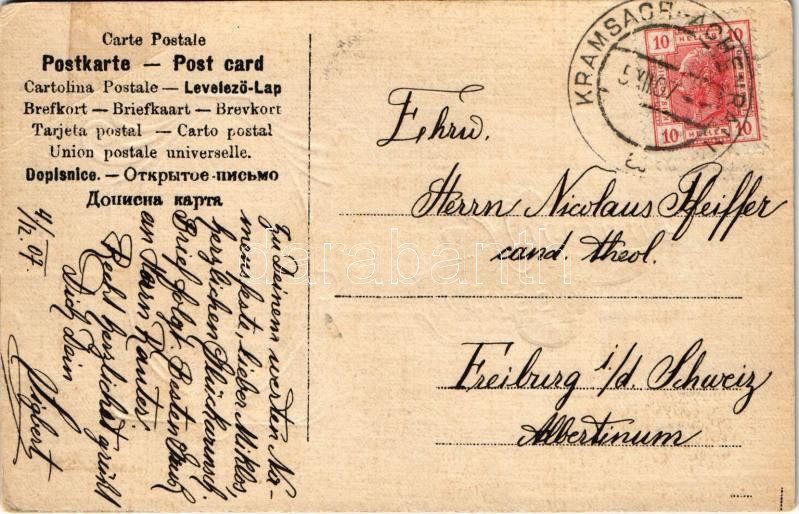 Carte Postale
Postkarte — Post card
Cartolina Postale — Levelező-Lap
Brefkort — Briefkaart — Brevkort
Tarjeta postal — Carto postal
Union postale universelle.
Dopisnice. — Открытое письмо
Дописна карта
4/12. 07.
Zu Deinem werten Na-
mensfeste, lieber Miklos,
herzlichen Glückwunsch.
Brief folgt. Besten Gruß
an Herrn
Recht herzlichst grüßt
Dich Dein
Sigbert
KRAMSACH-ACHENRAIN
5 XII 07
10 HELLER 10
Ehrw.
Herrn Nicolaus Pfeiffer
cand. theol.
Freiburg i/d. Schweiz
Albertinum
darabanth